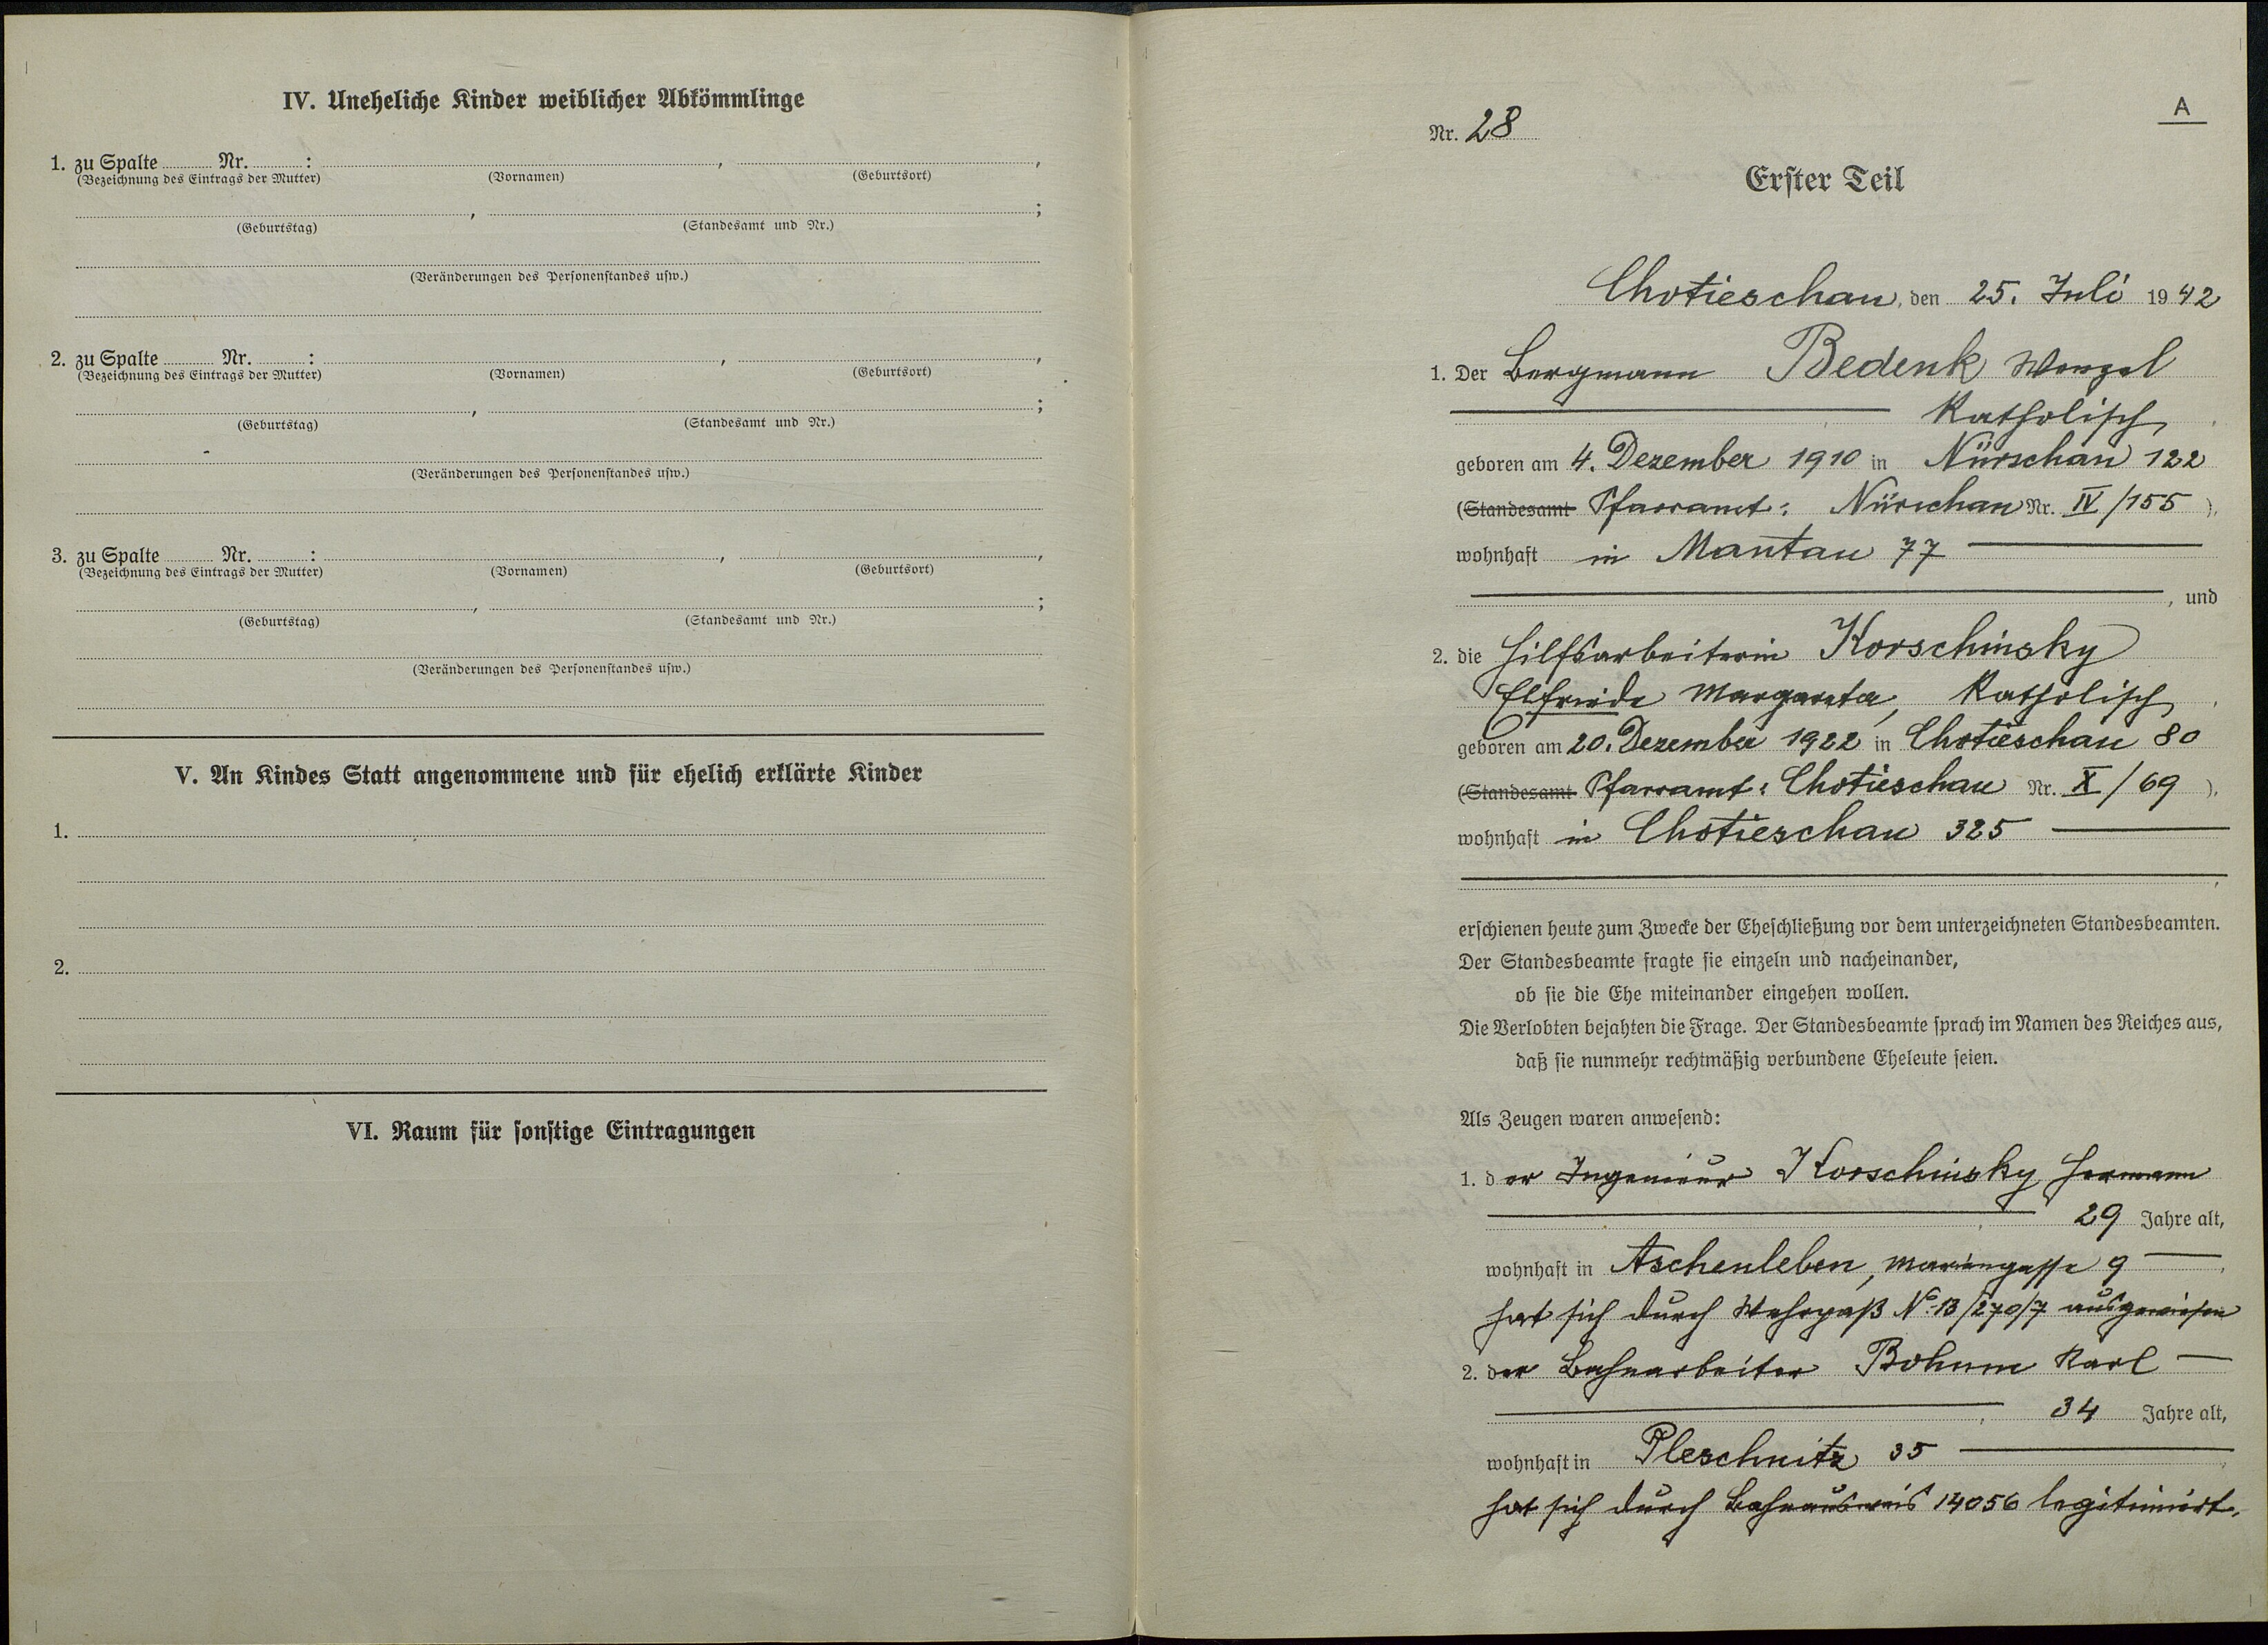 IV. Uneheliche Kinder weiblicher Abkömmlinge
1. zu Spalte Nr. : , ,
(Bezeichnung des Eintrags der Mutter) (Vornamen) (Geburtsort)
, ;
(Geburtstag) (Standesamt und Nr.)
(Veränderungen des Personenstandes usw.)
2. zu Spalte Nr. : , ,
(Bezeichnung des Eintrags der Mutter) (Vornamen) (Geburtsort)
, ;
(Geburtstag) (Standesamt und Nr.)
(Veränderungen des Personenstandes usw.)
3. zu Spalte Nr. : , ,
(Bezeichnung des Eintrags der Mutter) (Vornamen) (Geburtsort)
, ;
(Geburtstag) (Standesamt und Nr.)
(Veränderungen des Personenstandes usw.)
V. An Kindes Statt angenommene und für ehelich erklärte Kinder
1.
2.
VI. Raum für sonstige Eintragungen
A
Nr. 28
Erster Teil
Chotieschau, den 25. Juli 1942
1. Der Bergmann Bedenk Wenzel
Katholisch,
geboren am 4. Dezember 1910 in Nürschau 122
(Standesamt Pfarramt: Nürschau Nr. IV/155 ),
wohnhaft in Mantau 77
, und
2. die Hilfsarbeiterin Korschinsky
Elfriede Margareta, Katholisch,
geboren am 20. Dezember 1922 in Chotieschau 80
(Standesamt Pfarramt: Chotieschau Nr. X/69 ),
wohnhaft in Chotieschau 325
,
erschienen heute zum Zwecke der Eheschließung vor dem unterzeichneten Standesbeamten.
Der Standesbeamte fragte sie einzeln und nacheinander,
ob sie die Ehe miteinander eingehen wollen.
Die Verlobten bejahten die Frage. Der Standesbeamte sprach im Namen des Reiches aus,
daß sie nunmehr rechtmäßig verbundene Eheleute seien.
Als Zeugen waren anwesend:
1. der Ingenieur Korschinsky Hermann
, 29 Jahre alt,
wohnhaft in Aschenleben, Mariengasse 9 ,
hat sich durch Wehrpaß No 13/270/7 ausgewiesen
2. der Bahnarbeiter Bohmm Karl
, 34 Jahre alt,
wohnhaft in Pleschnitz 35
hat sich durch Bahnausweis 14056 legitimiert.